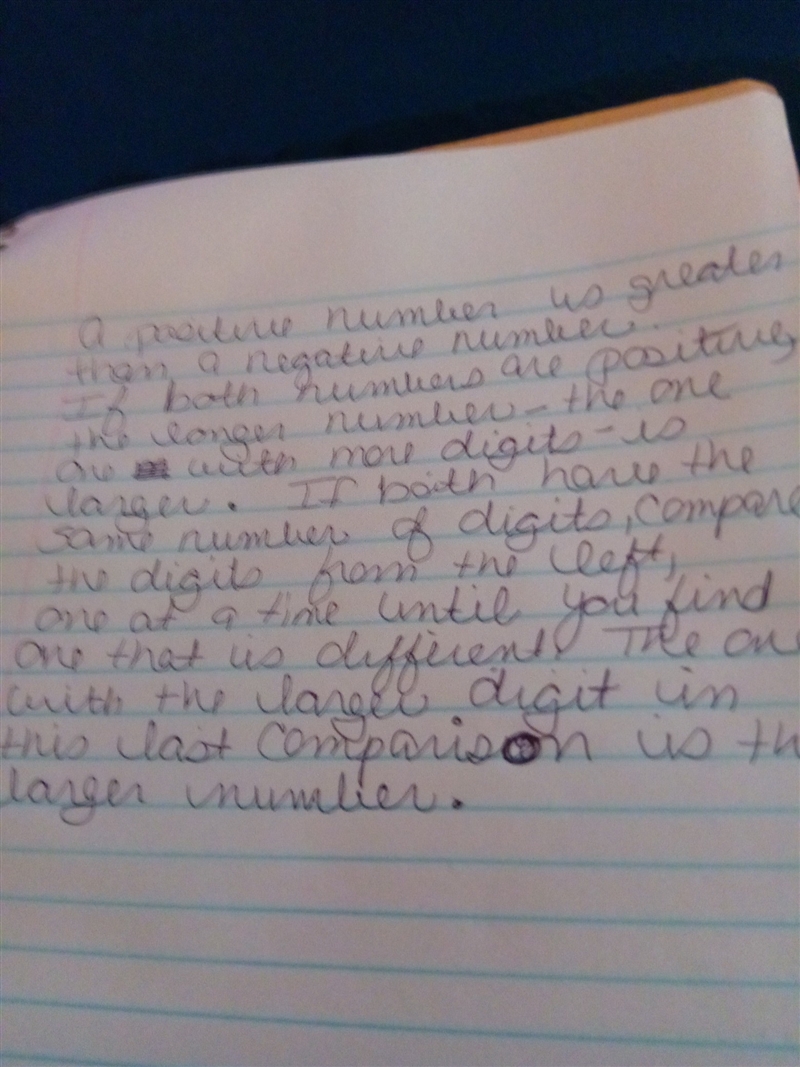 A positive number is greater
than a negative number.
If both numbers are positive,
the longer number - the one
one with more digits - is
larger. If both have the
same number of digits, compare
the digits from the left,
one at a time until you find
one that is different. The on
with the larger digit in
this last comparison is th
larger number.